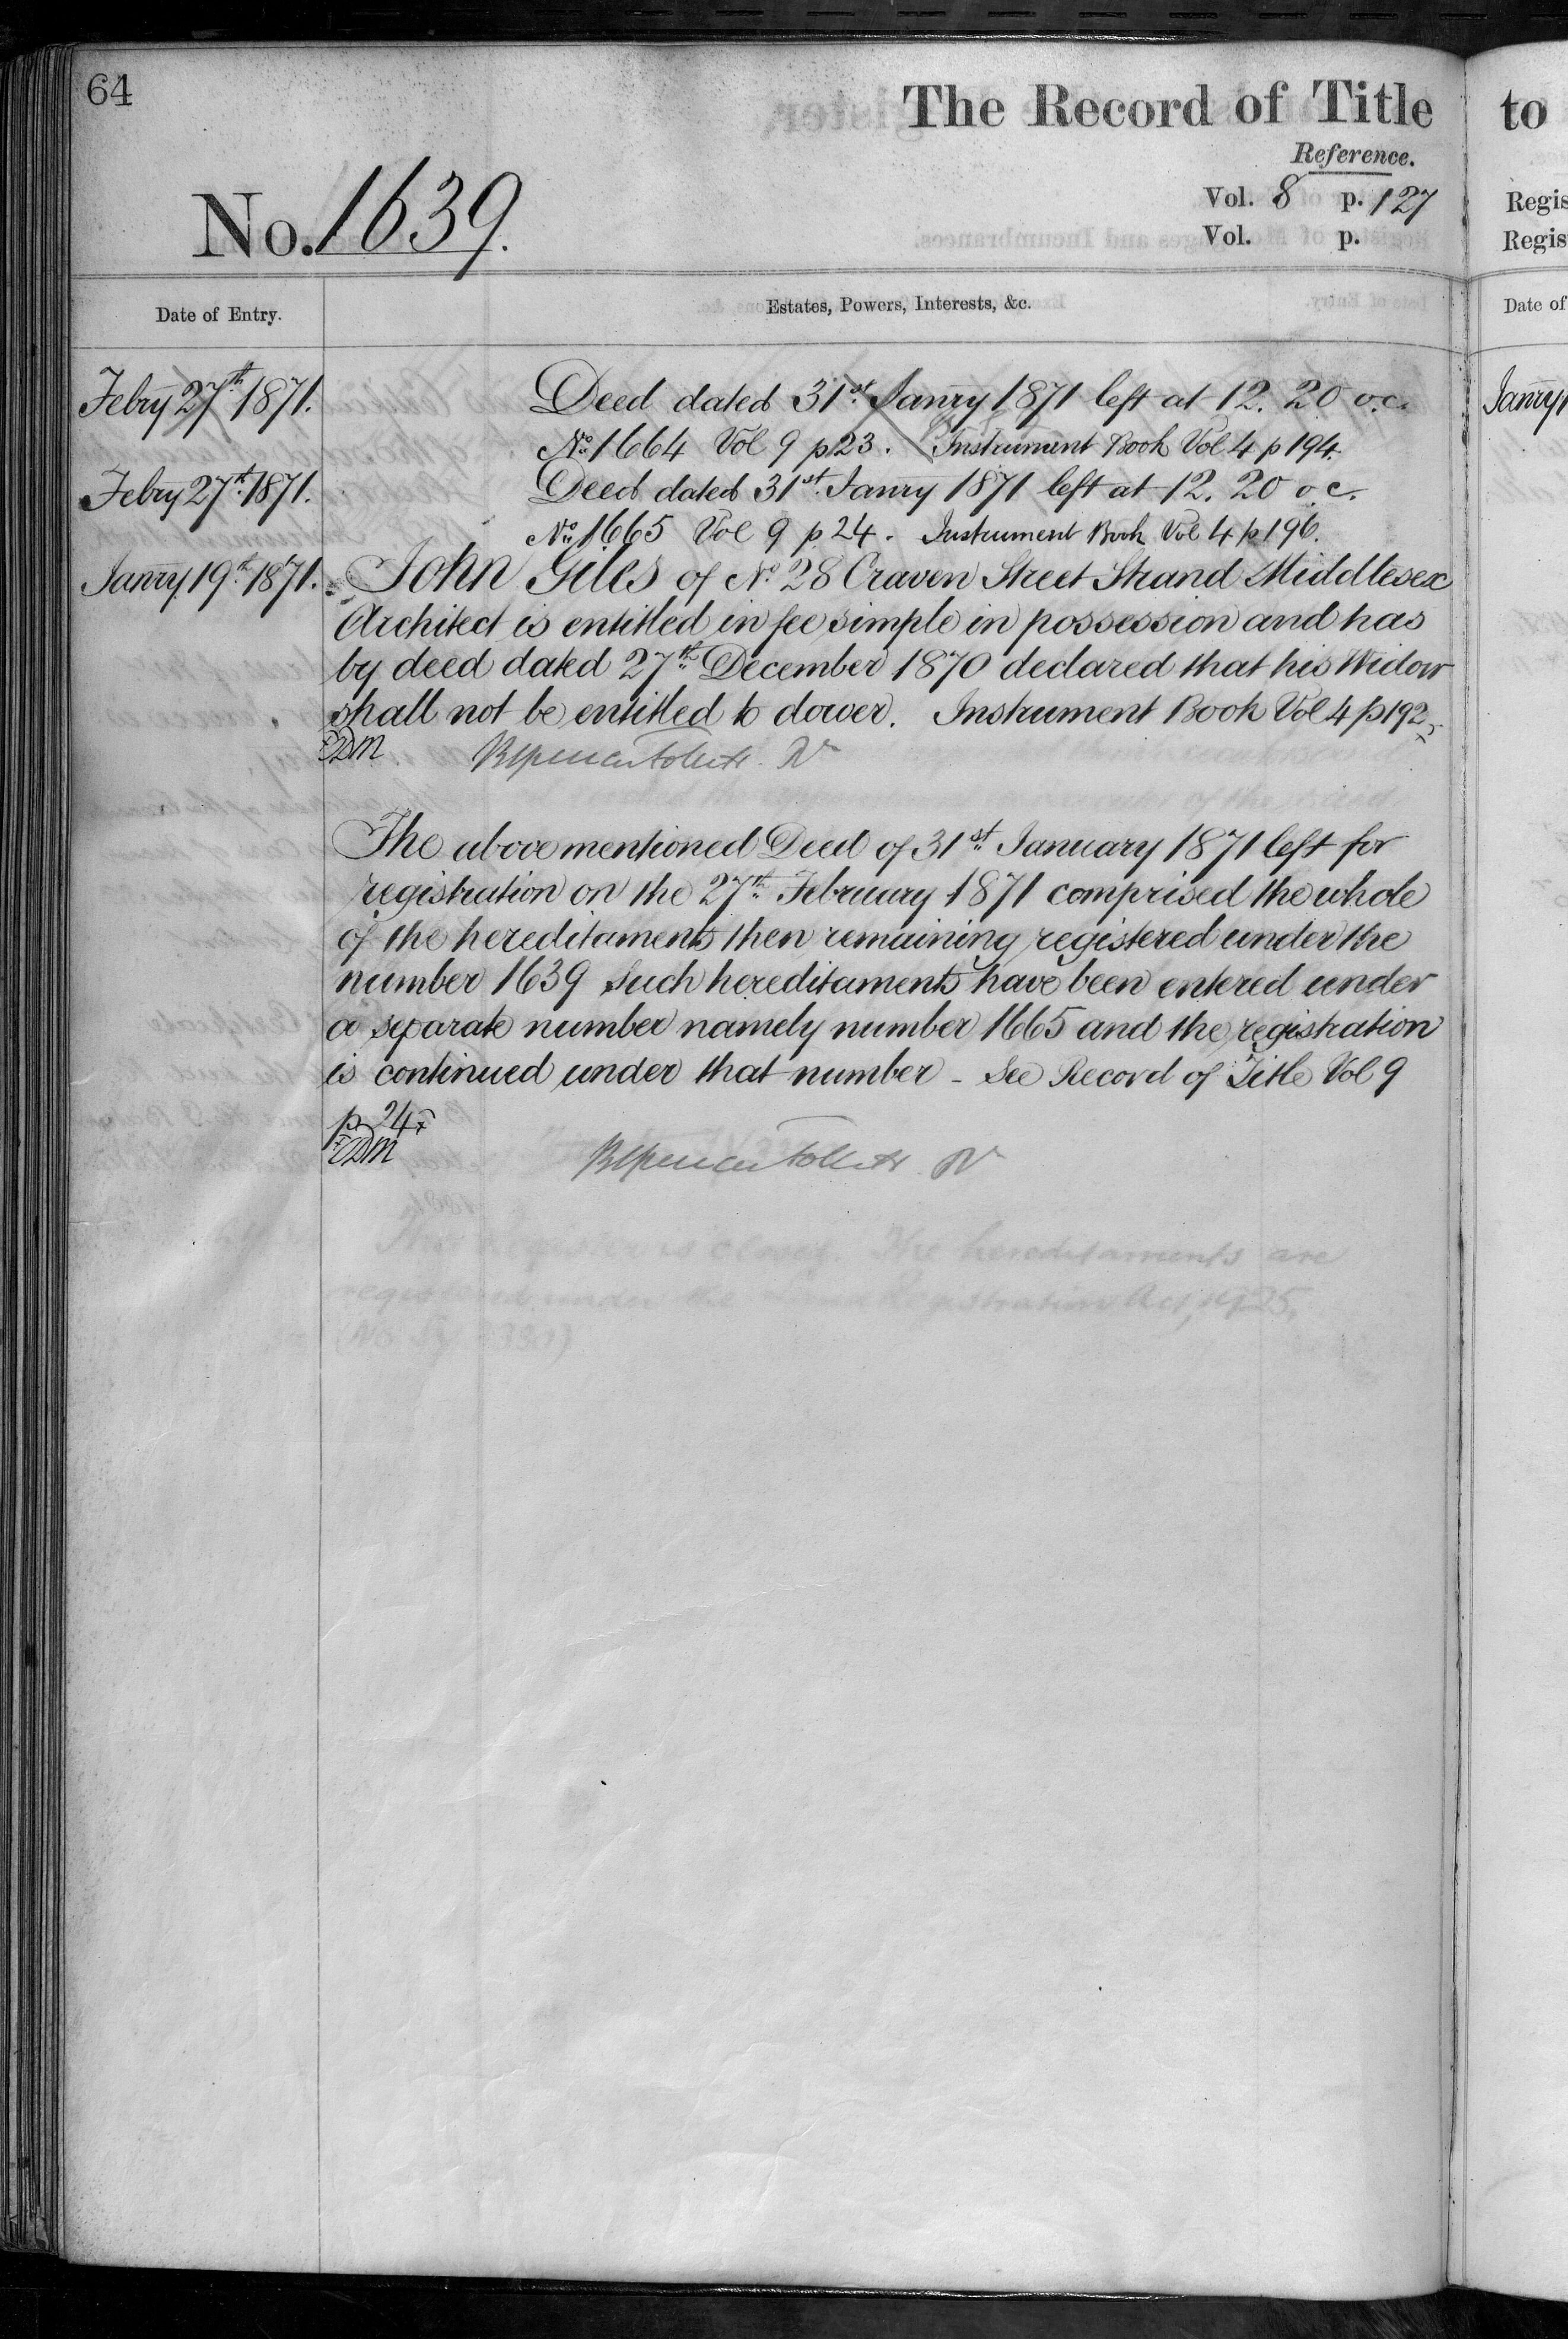 64
The Record of Title
to
Reference.
No. 1639.
Vol. 8 p. 127
Regis
Vol. p.
Regis
Date of Entry.
Estates, Powers, Interests, &c.
Date of
Febry 27th 1871.
Deed dated 31st Janry 1871 left at 12. 20 o.c.
Janry 1
No 1664 Vol 9 p 23. Instrument Book Vol 4 p 194.
Febry 27th 1871.
Deed dated 31st Janry 1871 left at 12. 20 o c.
No 1665 Vol 9 p 24. Instrument Book Vol 4 p 196.
Janry 19th 1871.
John Giles of No 28 Craven Street Strand Middlesex
Architect is entitled in fee simple in possession and has
by deed dated 27th December 1870 declared that his Widow
shall not be entitled to dower. Instrument Book Vol 4 p 192
The above mentioned Deed of 31st January 1871 left for
registration on the 27th February 1871 comprised the whole
of the hereditaments then remaining registered under the
number 1639 Such hereditaments have been entered under
a separate number namely number 1665 and the registration
is continued under that number - See Record of Title Vol 9
p. 24